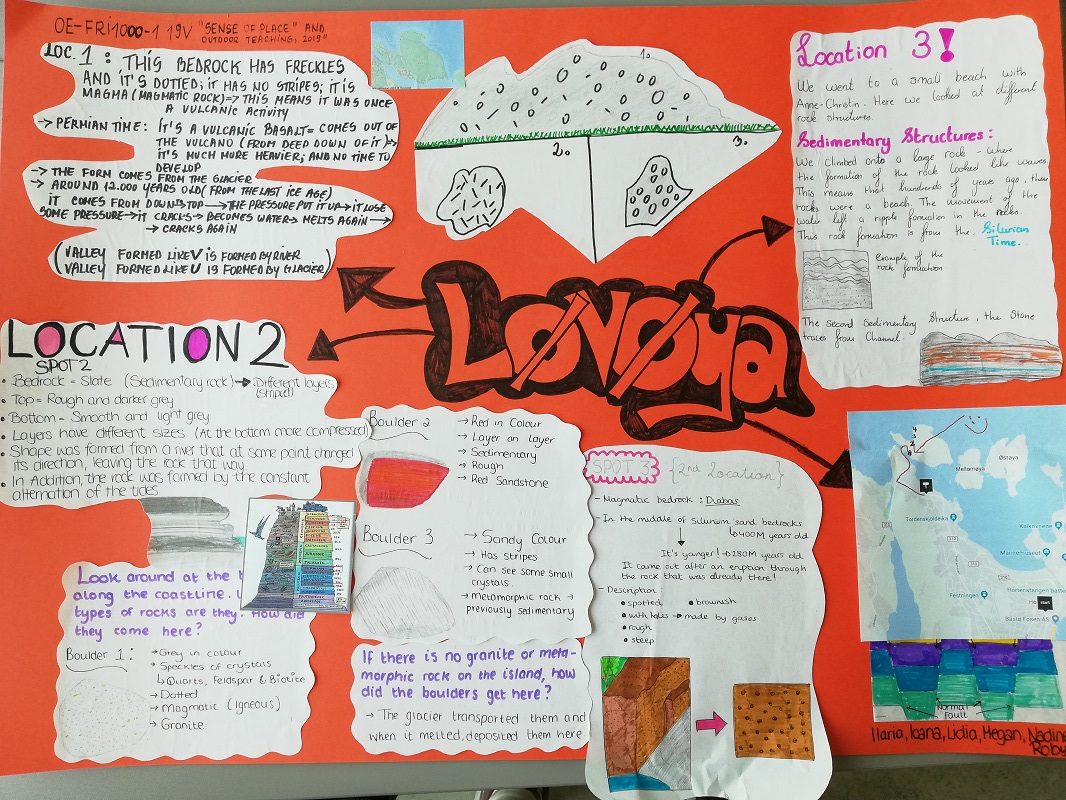 OE-FRI1000-1 19V "SENSE OF PLACE" AND
OUTDOOR TEACHING, 2019"
LOC. 1: THIS BEDROCK HAS FRECKLES
AND IT'S DOTTED; IT HAS NO STRIPES; IT IS
MAGMA (MAGMATIC ROCK) => THIS MEANS IT WAS ONCE
A VULCANIC ACTIVITY
→ PERMIAN TIME: IT'S A VULCANIC BASALT = COMES OUT OF
THE VULCANO (FROM DEEP DOWN OF IT) =>
IT'S MUCH MORE HEAVIER; AND NO TIME TO
DEVELOP
→ THE FORM COMES FROM THE GLACIER
→ AROUND 12.000 YEARS OLD (FROM THE LAST ICE AGE)
IT COMES FROM DOWN → TOP → THE PRESSURE PUT IT UP → IT LOSE
SOME PRESSURE → IT CRACKS → BECOMES WATER → MELTS AGAIN →
→ CRACKS AGAIN
(VALLEY FORMED LIKE V IS FORMED BY RIVER
VALLEY FORMED LIKE U IS FORMED BY GLACIER)
1.
2.
3.
LØVØya
Location 3!
We went to a small beach with
Anne-Christin. Here we looked at different
rock structures.
Sedimentary Structures:
We climbed onto a large rock - where
the formation of the rock looked like waves.
This means that hundreds of years ago, these
rocks were a beach. The movement of the
water left a ripple formation in the rocks.
This rock formation is from the Silurian
Time.
Example of the
rock formation
The second Sedimentary Structure, the Stone
traces from Channel.
LOCATION 2
SPOT 2
• Bedrock = Slate (Sedimentary rock) → Different layers
(striped)
• Top = Rough and darker grey
• Bottom = Smooth and light grey
• Layers have different sizes (At the bottom more compressed)
• Shape was formed from a river that at some point changed
its direction, leaving the rock that way.
• In Addition, the rock was formed by the constant
alternation of the tides
Look around at the
along the coastline.
types of rocks are they? How did
they come here?
Boulder 1: → Grey in colour
→ Speckles of crystals
↳ Quarts, Feldspar & Biotite
→ Dotted
→ Magmatic (Igneous)
→ Granite
Boulder 2
→ Red in Colour
→ Layer on layer
→ Sedimentary
→ Rough
→ Red Sandstone
Boulder 3
→ Sandy Colour
→ Has stripes
→ Can see some small
crystals
→ metamorphic rock →
previously sedimentary
If there is no granite or meta-
morphic rock on the island, how
did the boulders get here?
→ The glacier transported them and
when it melted, deposited them here
SPOT 3 {2nd Location}
- Magmatic bedrock: Diabas
- In the middle of Silurium sand bedrocks
↳ 400M years old
It's yunger! → 280M years old
It came out after an eruption through
the rock that was already there!
- Description
• spotted • brownish
• with holes → made by gases
• rough
• steep
Mellomøya
Østøya
Tordenskjoldeika
Marinemuseet
Festningen
Horten vatangen batte
start
Bastø Fosen AS
310
Normal
Fault
Ilaria, Ioana, Lidia, Megan, Nadine
Roby